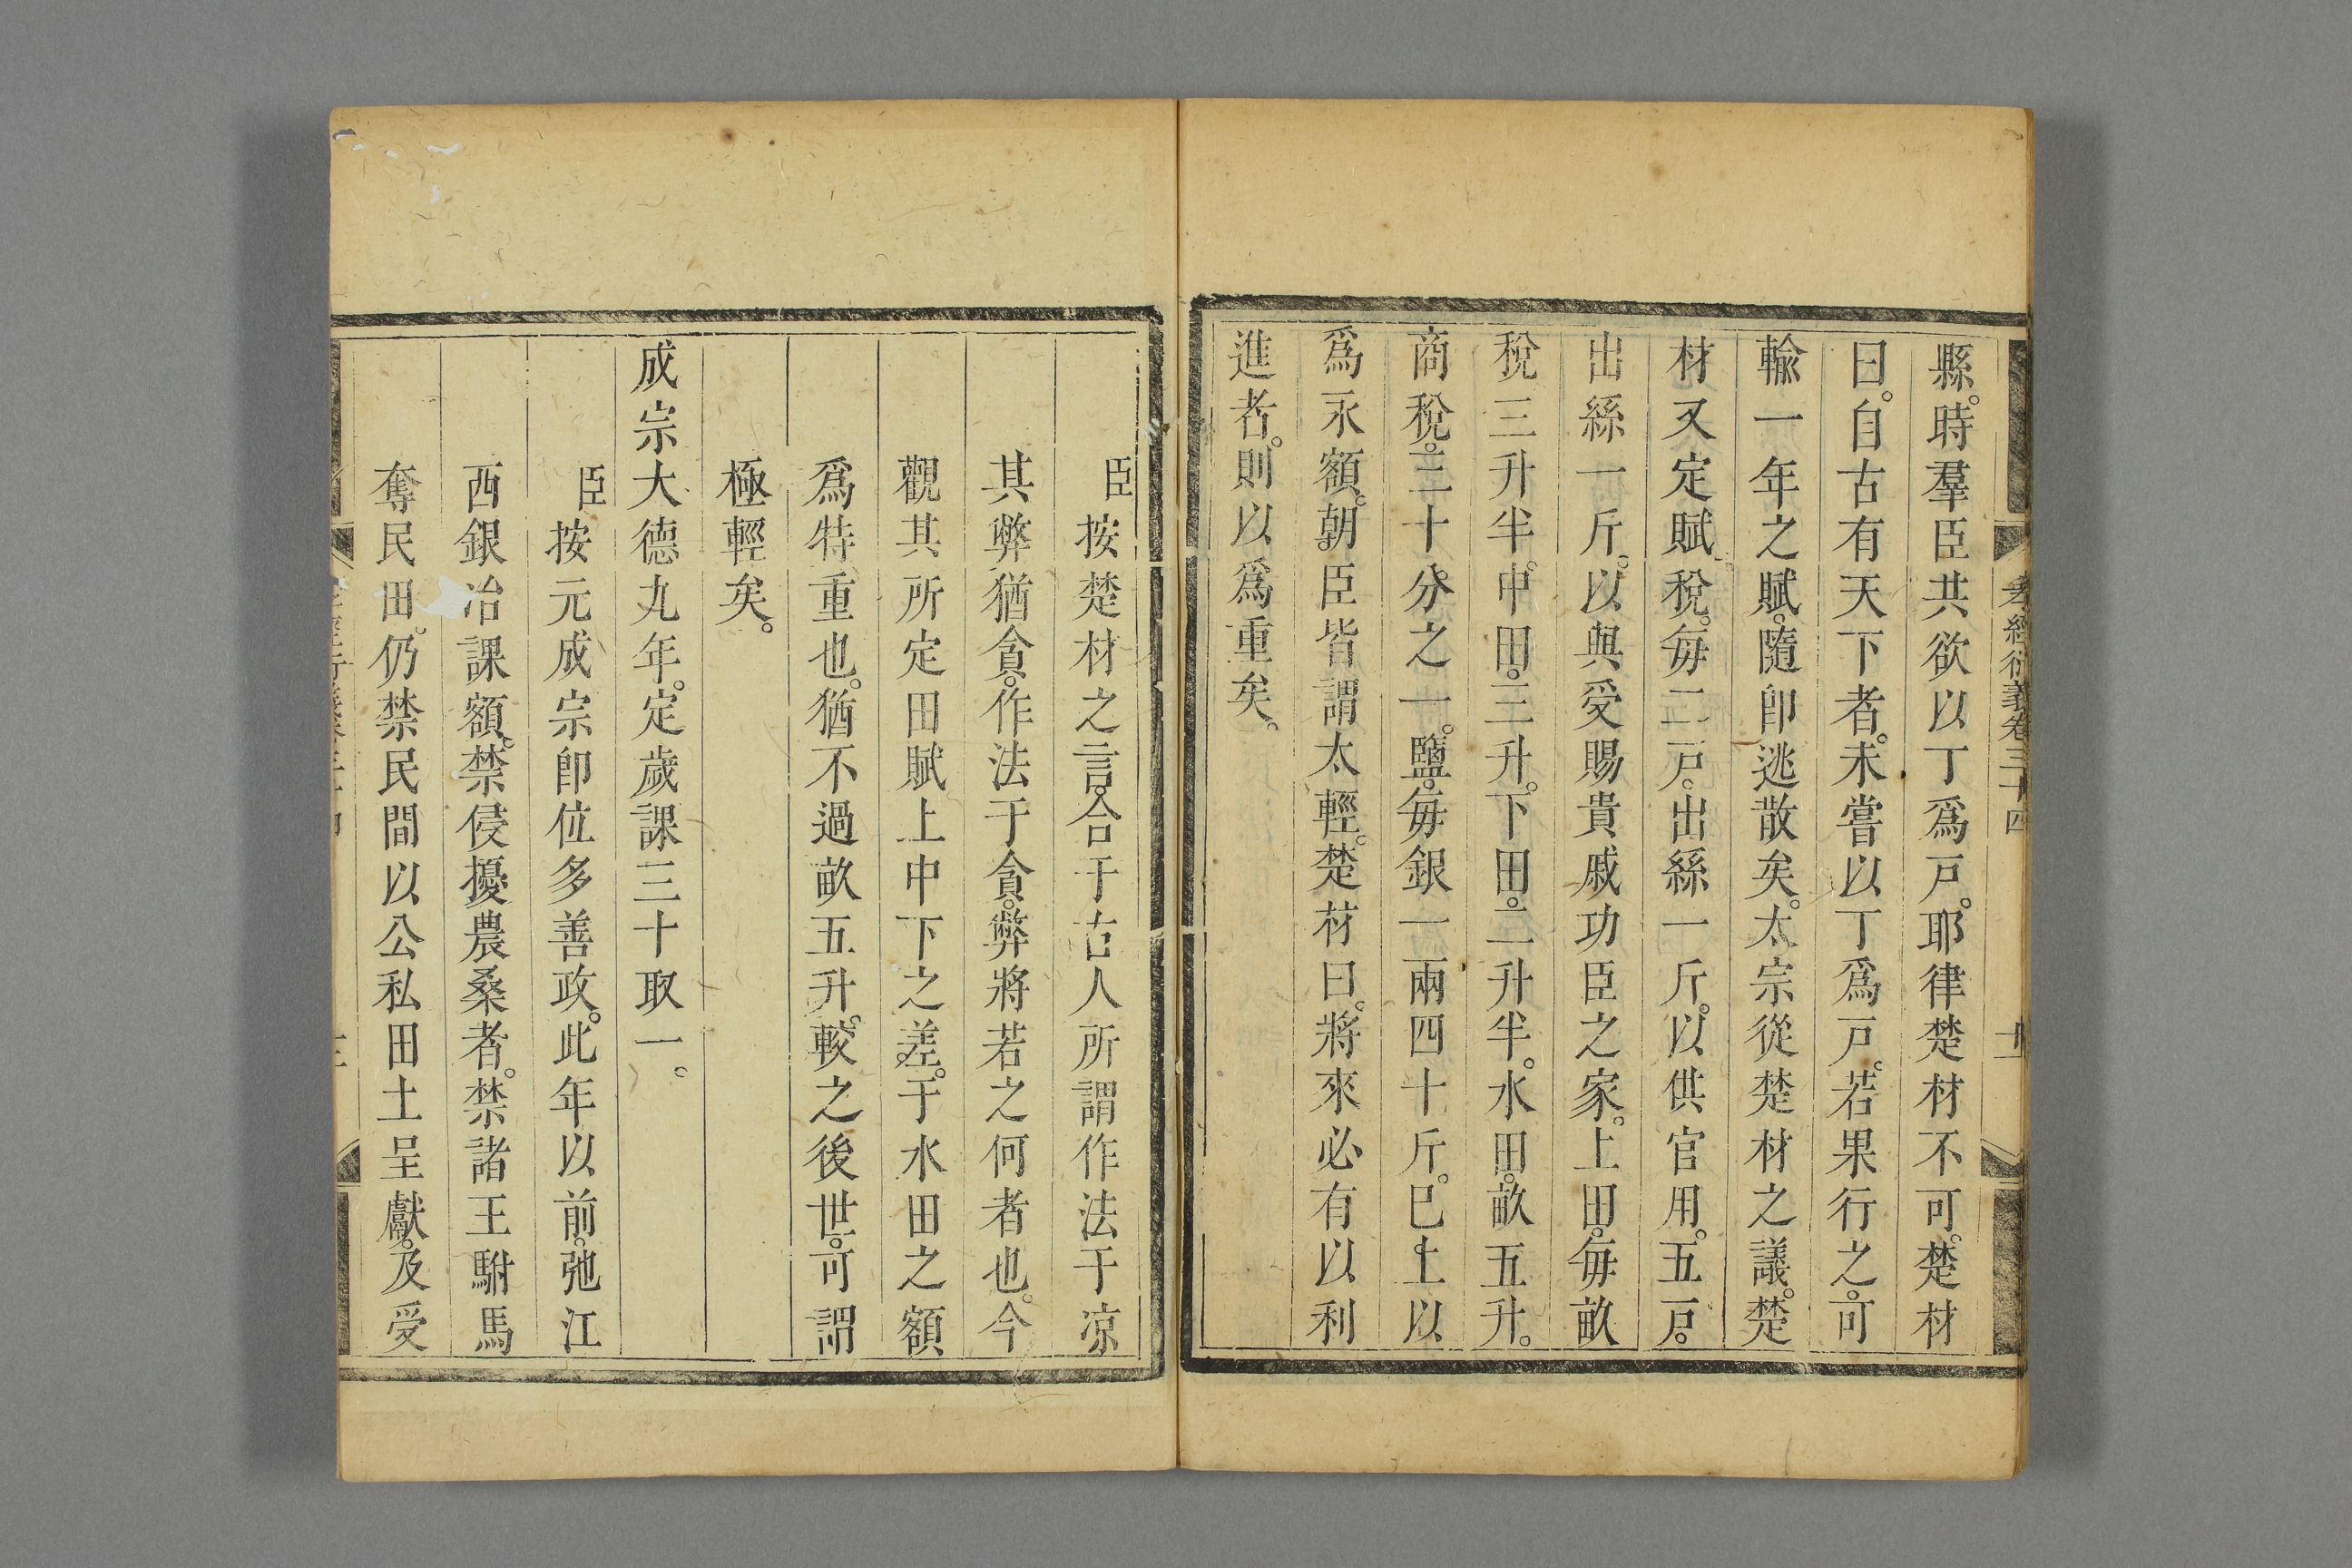 孝經衍義卷三十四
十二
縣。時羣臣共欲以丁爲戸。耶律楚材不可。楚材
曰。自古有天下者。未嘗以丁爲戸。若果行之。可
輸一年之賦。隨卽逃散矣。太宗從楚材之議。楚
材又定賦稅。每二戸。出絲一斤。以供官用。五戸。
出絲一斤。以與受賜貴戚功臣之家。上田。每畝
稅三升半。中田。三升。下田。二升半。水田。畝五升。
商稅。三十分之一。鹽。每銀一兩四十斤。巳上以
爲永額。朝臣皆謂太輕。楚材曰。將來必有以利
進者。則以爲重矣。
臣按楚材之言。合于古人所謂作法于凉
其弊猶貪。作法于貪。弊將若之何者也。今
觀其所定田賦上中下之差。于水田之額
爲特重也。猶不過畝五升。較之後世。可謂
極輕矣。
成宗大德九年。定歲課三十取一。
臣按元成宗卽位多善政。此年以前。弛江
西銀冶課額。禁侵擾農桑者。禁諸王駙馬
奪民田。仍禁民間以公私田土呈獻。及受